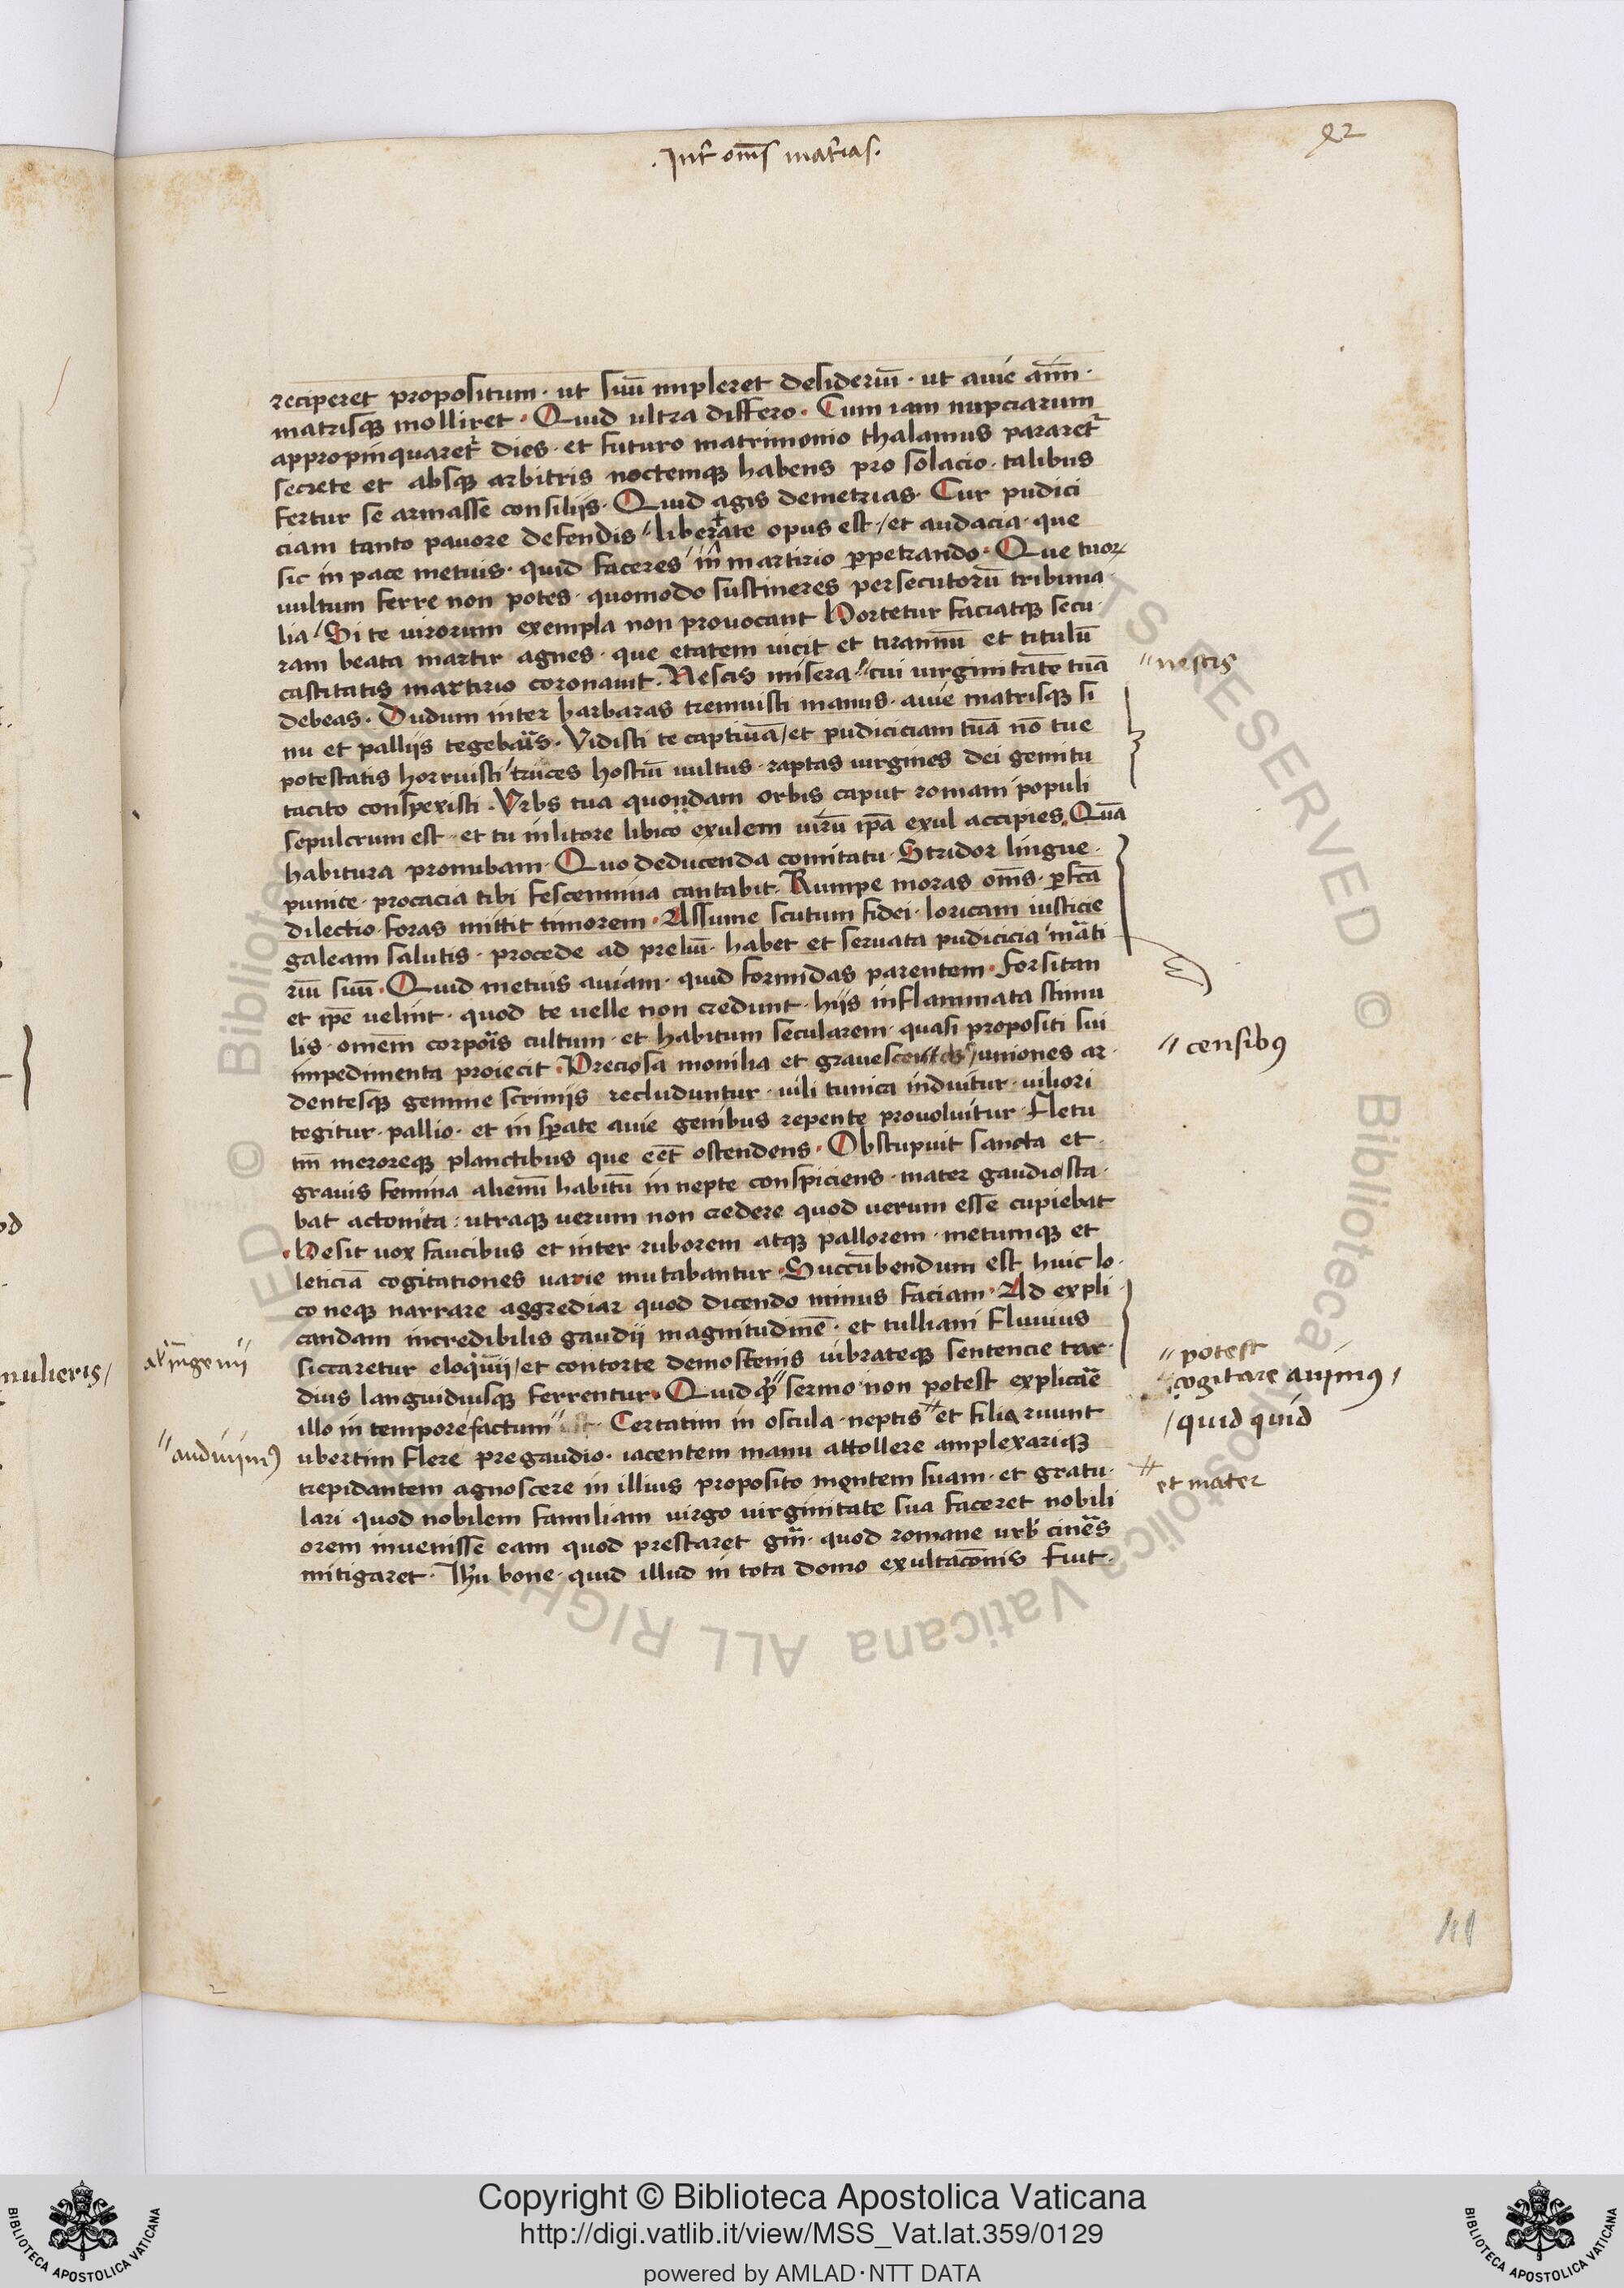 .Int̄ om̄s mat̄ias.
reciperet propositum · ut suū impleret desideriū · ut auie aīm ·
matrisqꝫ molliret · Quid ultra differo · Cum iam nupciarum
appropinquaret̄ dies · et futuro matrimonio thalamus pararet̄
secrete et absqꝫ arbitris noctemqꝫ habens pro solacio · talibus
fertur se armasse consilijs · Quid agis demetrias · Cur pudici
ciam tanto pauore defendis / liberate opus est / et audacia · que
sic in pace metuis · quid faceres in martirio ꝑpetrando · Que tuoꝝ
uultum ferre non potes · quomodo sustineres persecutorū tribuna
lia / Si te uirorum exempla non prouocant Hortetur faciatqꝫ secu
ram beata martir agnes · que etatem uicit et tirannū et titulū
castitatis martirio coronauit · Nescis misera // cui uirginitatē tuā
debeas · Dudum inter barbaras tremuisti manus · auie matrisqꝫ si
nu et pallijs tegebaīs · Vidisti te captiuā / et pudiciciam tuā nō tue
potestatis horruisti truces hostiū uultus · raptas uirgines dei gemitu
tacito conspexisti · Vrbs tua quondam orbis caput romani populi
sepulcrum est · et tu in litore libico exulem uirū ip̄a exul accipies · Quā
habitura pronubam · Quo deducenda comitatu · Stridor lingue ·
punice · procacia tibi fescennina cantabit · Rumpe moras om̄s · ꝑfc̄a
dilectio · foras mittit timorem · Assume scutum fidei · loricam iusticie
galeam salutis · procede ad preliū · habet et seruata pudicicia mārti
riū suū · Quid metuis auiam · quid formidas parentem · Forsitan
et ip̄e uelint · quod te uelle non credunt · hijs inflammata stimu
lis · omnem̄ corpoīs cultum · et habitum secularem · quasi propositi sui
impedimenta proiecit · Preciosa monilia et graues uniones ar ·
dentesqꝫ gemme scrinijs recluduntur · uili tunica induitur · uiliori
tegitur · pallio · et insꝑate auie genibus repente prouoluitur · Fletu
tm̄ meroreqꝫ planctibus que eēt ostendens · Obstupuit sancta et
grauis femina alienū habitū in nepte conspiciens · mater gaudio sta ·
bat actonita : utraqꝫ uerum non credere quod uerum esse cupiebat
Hesit uox faucibus et inter ruborem atqꝫ pallorem · metumqꝫ et
leticiā cogitationes uarie mutabantur · Succūbendum est huic lo ·
co neqꝫ narrare aggrediar quod dicendo minus faciam · Ad expli
candam incredibilis gaudij magnitudinē · et tulliani fluuius
siccaretur eloquij / et contorte demostenis uibrateqꝫ sentencie tar ·
dius languidiusqꝫ ferrentur · Quid sermo non potest explicāe
illo in tempore factum // · Certatim in oscula · neptis et filie ruunt
ubertim flere pre gaudio · iacentem manu attollere amplexariqꝫ
trepidantem agnoscere in illius proposito mentem suam · et gratu ·
lari quod nobilem familiam uirgo uirginitate sua faceret nobili
orem inuenisse eam quod prestaret · quod romane urb̄ cineēs
mitigaret · Ihū bone · quid illud in tota domo exultac̄onis fuit ·
// nescis
// censibꝰ
// potest
cogitare animꝰ /
/ quid quid
et mater
al̄ ingenij
// audiuimꝰ
mulieris /
41
Copyright © Biblioteca Apostolica Vaticana
http://digi.vatlib.it/view/MSS_Vat.lat.359/0129
powered by AMLAD·NTT DATA
BIBLIOTECA APOSTOLICA VATICANA
BIBLIOTECA APOSTOLICA VATICANA